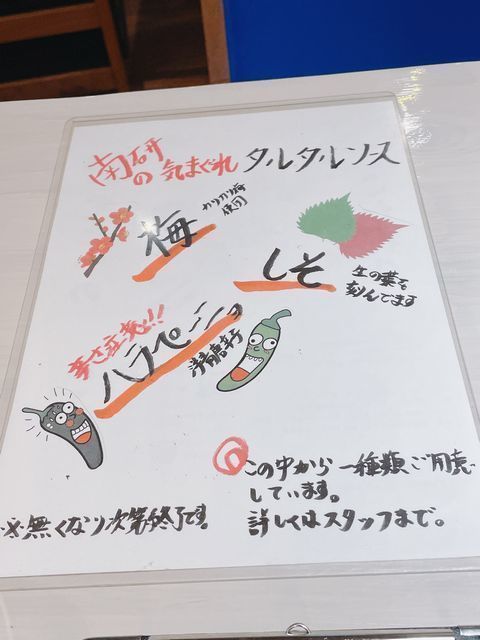 南研の気まぐれ タルタルソス
梅
カリカリ梅
使用
しそ
生の葉を
刻んでます
辛さ注意!!
ハラペーニョ
この中から一種類ご用意
しています。
詳しくはスタッフまで。
※無くなり次第終了です。